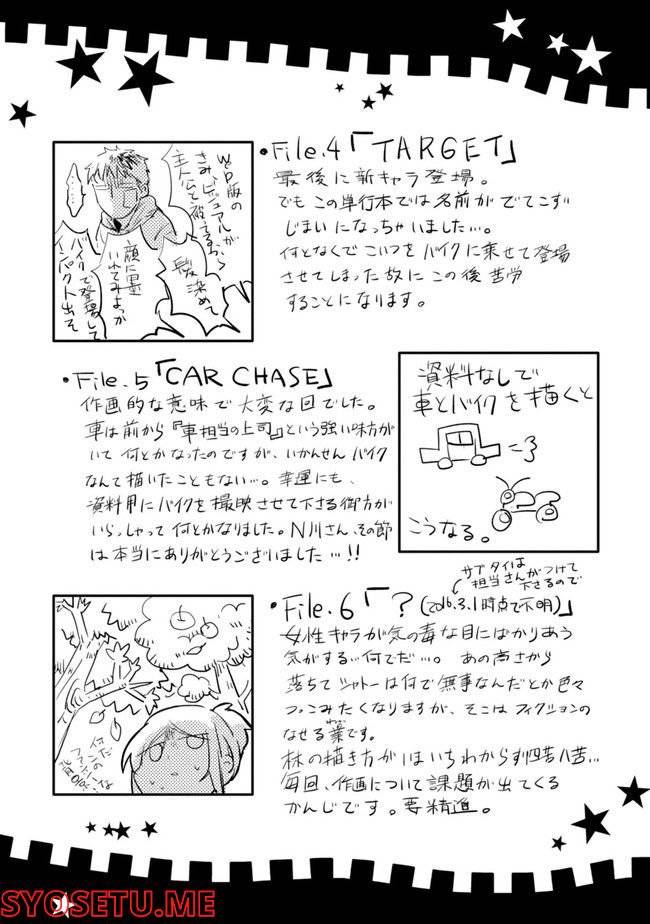 •File.4「TARGET」
最後に新キャラ登場。
でもこの単行本では名前がでてこず
じまいになっちゃいました…。
何となくでこいつをバイクに乗せて登場
させてしまった故にこの後苦労
することになります。
WEB版の
さみ、ビジュアルが
主人公と被ってるから
髪染めて
顔に墨
いれてみよっか
バイクで登場して
インパクト出そ
……
•File.5「CAR CHASE」
作画的な意味で大変な回でした。
車は前から『車担当の上司』という強い味方が
いて何とかなったのですが、いかんせんバイク
なんて描いたこともない…。幸運にも、
資料用にバイクを撮映させて下さる御方が
いらっしゃって何とかなりました。N川さん、その節
は本当にありがとうございました…!!
資料なしで
車とバイクを描くと
こうなる。
サブタイは
担当さんがつけて
下さるので
•File.6「?(2016.3.1時点で不明)」
女性キャラが気の毒な目にばかりあう
気がする…何でだ…。あの高さから
落ちてシャトーは何で無事なんだとか色々
つっこみたくなりますが、そこはフィクションの
なせる業です。
わざ
林の描き方がいまいちわからず四苦八苦…
毎回、作画について課題が出てくる
かんじです。要精進。
SYOSETU.ME